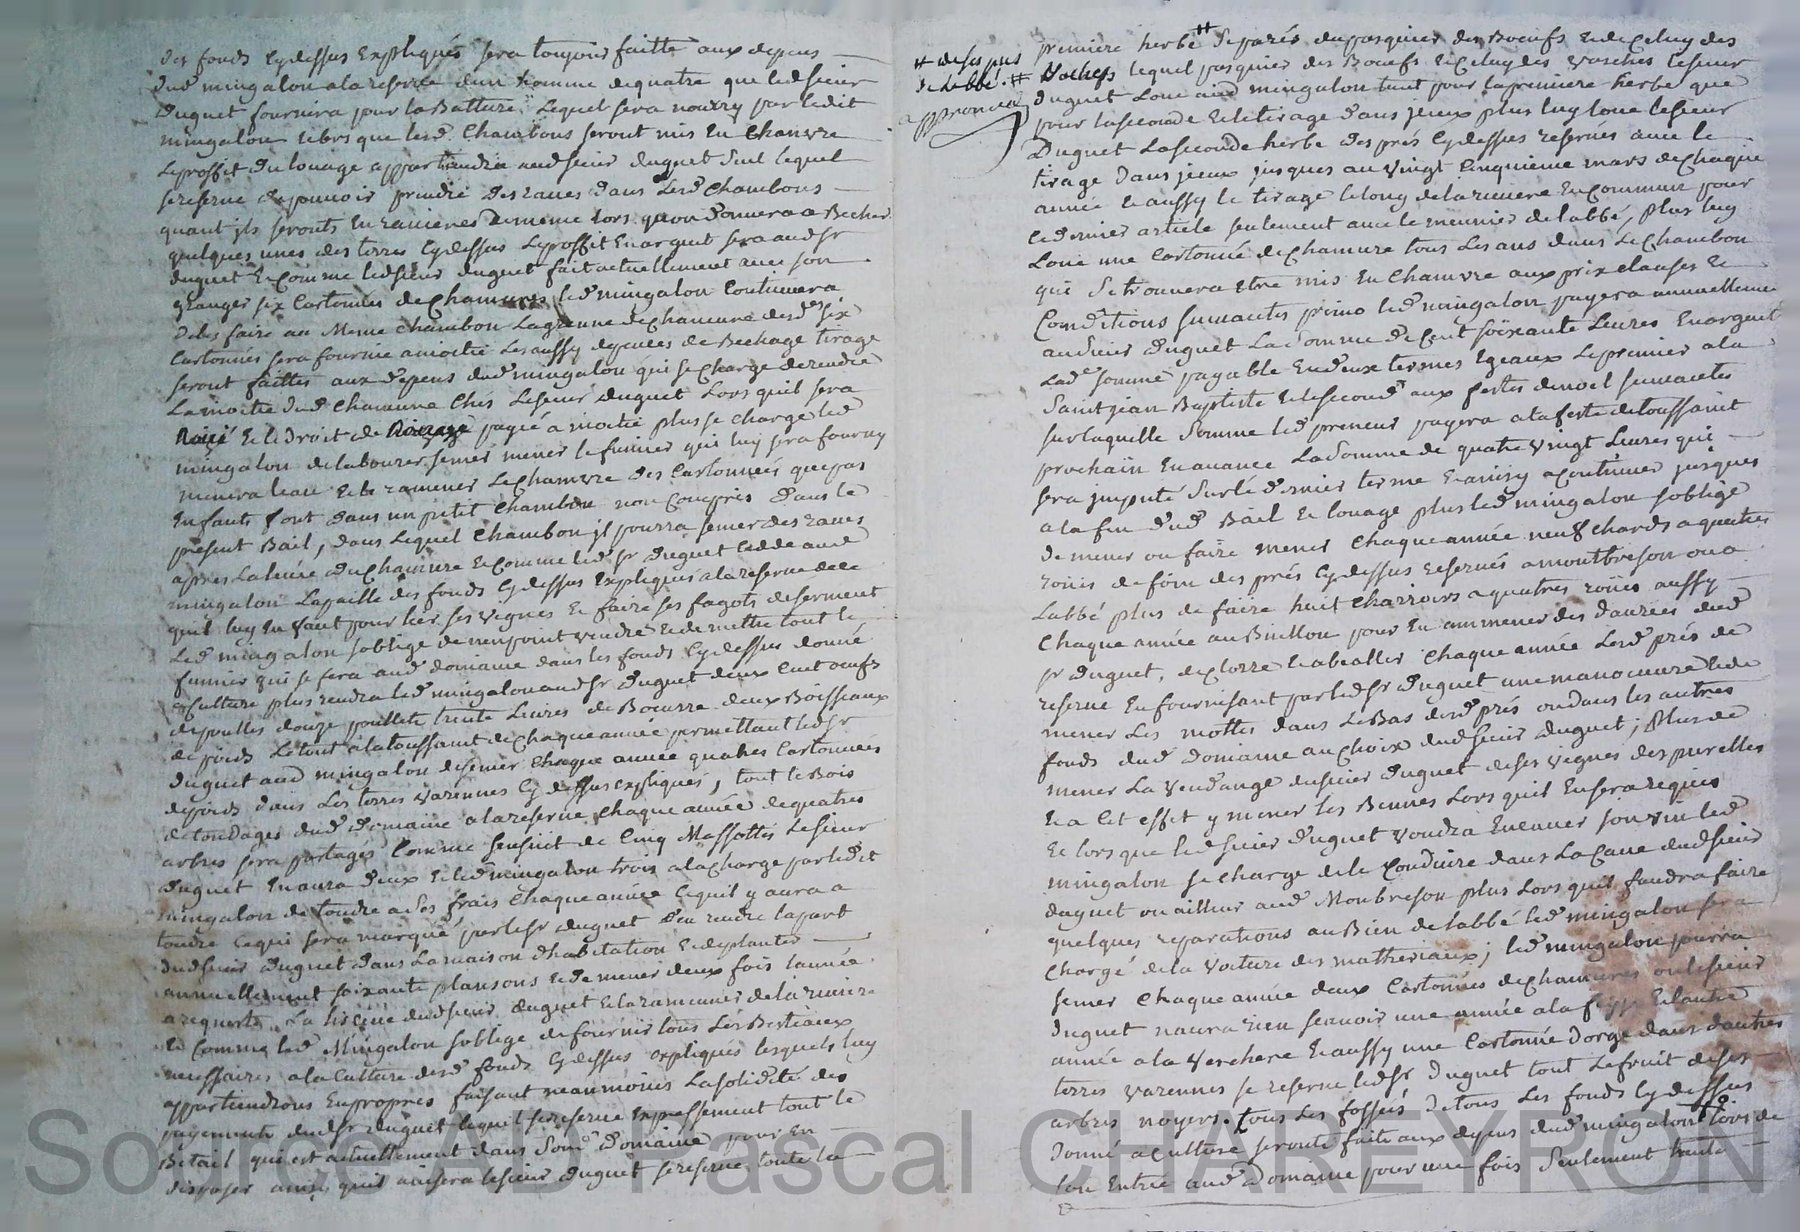 des fonds cydessus Expliqués sera toujours faitte aux depens
dud mingalon alareserve d'un homme dequatre que ledsieur
Duguet fournira pour la Batture, Lequel sera nourry par ledit
mingalon, lorsque lesd Chambons seront mis En Chanvre
Leproffit du louage appartiendra audsieur duguet seul lequel
sereserve depouvoir prendre des raves dans lesd Chambons
quant jls seronts En ravieres Demême lors quon donnera a Becher
quelques unes des terres Cydessus Leproffit Enargent sera audsr
duguet Et Comme ledsieur duguet fait actuellement avec son
granger six Cartonnées de Chanvres led mingalon Continuera
deles faire au Meme Chambon La graine de Chanvre desd six
Cartonnées sera fournie amoitié Les aussy depens de Bechage tirage
seront faittes aux depens dud mingalon qui se charge de rendre
La moitié dud Chanvre Chés Lesieur duguet Lors quil sera
Naizé Et le Droit de Naizage payé à moitié plus se charge led
mingalon de labourer, semer mener le fumier qui luy sera fourny
menera leau Et de ramener Le Chanvre des Cartonnées que pas
Enfants font dans un petit Chambon non Compris dans le
present Bail, dans Lequel Chambon jl pourra semer des raves
apres La levée du Chanvre Et Comme led sr duguet Cedde aud
mingalon Lapaille des fonds Cydessus Expliqués alareserve de ce
quil luy En faut pour lier ses vignes Et faire ses fagots de serment
Led mingalon soblige de nen point vendre Et de mettre tout le
fumier qui se fera aud domaine dans les fonds Cydessus donné
aCulture plus rendra led mingalon aud sr duguet deux Cent oeufs
de poulles douze poullets trente Livres de Beurre deux Boisseaux
de poids Le tout alatoussaint de Chaque année permettant led sr
Duguet aud mingalon de semer Chaque année quatres Cartonnées
de poids dans Les terres varennes Cydessus expliqués, tout le Bois
de tondages dud Domaine alareserve Chaque année de quatres
arbres sera partagés Comme sensuit de Cinq Massottes Lesieur
duguet En aura deux Et led mingalon trois ala Charge par ledit
mingalon de tondre ases frais Chaque année Cequil y aura a
tondre Cequi sera marqué par led sr duguet den rendre la part
dudsieur duguet dans La maison dhabitation Et de planter
annuellement soixante plansons Et de mener deux fois lannée
arequerte La lissive dudsieur duguet Et la ramener de la riviere
Et Comme led Mingalon soblige de fournir tous Les Bestiaux
necessaires ala Culture desd fonds Cydessus expliqués lesquels luy
appartiendrons Enpropres faisant neanmoins La solidité des
payements dud sr duguet lequel se reserve Expressement tout le
Betail qui est actuellement dans son domaine pour En
disposer ainsi quil avisera lesieur duguet se reserve toute la
# de ses prés
de Labbé. #
approuvé
premiere herbe # Separés du pasquier des Boeufs Et de Celuy des
Vaches lequel pasquier des Boeufs Et Celuy des vaches lesieur
duguet Loue aud mingalon tant pour la premiere herbe que
pour la seconde Et le tirage dans jceux plus luy loue lesieur
Duguet La seconde herbe des prés Cydessus reservés avec le
tirage dans jceux jusques au vingt Cinquieme mars de Chaque
année Et aussy le tirage le long de la riviere En Commun pour
Ce dernier article seulement avec le meunier de labbé, plus luy
Loue une Cartonnée de Chanvre tous Les ans dans le Chambon
qui se trouvera Etre mis En Chanvre aux prix clauses Et
Conditions suivantes primo led mingalon payera annuellement
audsieur duguet La somme de Cent soixante Livres En argent
Lade somme payable En deux termes Egeaux Le premier ala
Saint jean Baptiste Et le second aux festes de noel suivantes
sur laquelle somme led preneur payera alafeste de toussaint
prochain En avance La somme de quatre vingt Livres qui
sera jmputé sur le dernier terme Et ainsy a Continuer jusques
ala fin dud Bail Et louage plus led mingalon soblige
de mener ou faire mener Chaque année neuf chards a quatres
roües de foin des prés Cydessus reservés a montbrison ou a
Labbé plus de faire huit Charroirs a quatres roües aussy
Chaque année au Buillon pour En ammener des danrées dud
sr duguet, de Clorre Et abealler Chaque année Lesd prés de
reserve En fournisant par led sr duguet une manoeuvre Et de
mener Les mottes dans Le Bas desd prés ou dans les autres
fonds dud domaine au Choix dudsieur duguet; plus de
mener La vendange du sieur duguet de ses vignes des purelles
Et a Cet effet y mener les Bennes Lors quil En sera requis
Et lors que led sieur duguet voudra Encaver son vin led
mingalon se charge de le Conduire dans La Cave dudsieur
duguet ou ailleur aud Monbrison plus Lors quil faudra faire
quelques reparations au Bien de labbé led mingalon sera
Chargé de la voiture des matheriaux; led mingalon pourra
semer Chaque année deux Cartonnées de Chanvres ou lesieur
Duguet naura rien scavoir une année ala Et lautre
année ala Verchere Et aussy une Cartonnée dorge dans dautres
terres varennes se reserve led sr Duguet tout Le fruit de ses
arbres noyers. Tous Les fossés de tous Les fonds Cydessus
donné aCulture seronts faits aux depens dud mingalon Lors de
son Entrée aud Domaine pour une fois seulement toute